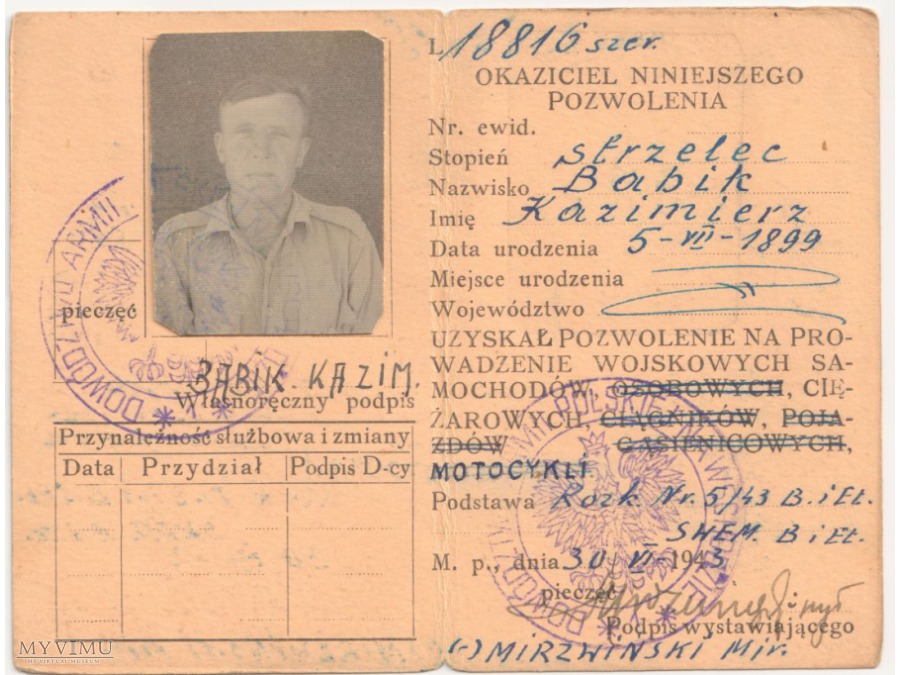 pieczęć
BABIK. KAZIM.
Własnoręczny podpis
Przynależność służbowa i zmiany
Data Przydział Podpis D-cy
DOWÓDZTWO ARMII
MYVIMU
MY VIRTUAL MUSEUM
L 18816 szer.
OKAZICIEL NINIEJSZEGO
POZWOLENIA
Nr. ewid.
Stopień strzelec
Nazwisko Babik
Imię Kazimierz
Data urodzenia 5-VII-1899
Miejsce urodzenia
Województwo
UZYSKAŁ POZWOLENIE NA PRO-
WADZENIE WOJSKOWYCH SA-
MOCHODÓW, OSOBOWYCH, CIĘ-
ŻAROWYCH, CIĄGNIKÓW, POJA-
ZDÓW GĄSIENICOWYCH,
MOTOCYKLI.
Podstawa Rozk Nr. 5/43 B. i Et.
M. p., dnia 30 VI-1943
pieczęć
Podpis wystawiającego
(-) MIRZWIŃSKI Mjr.